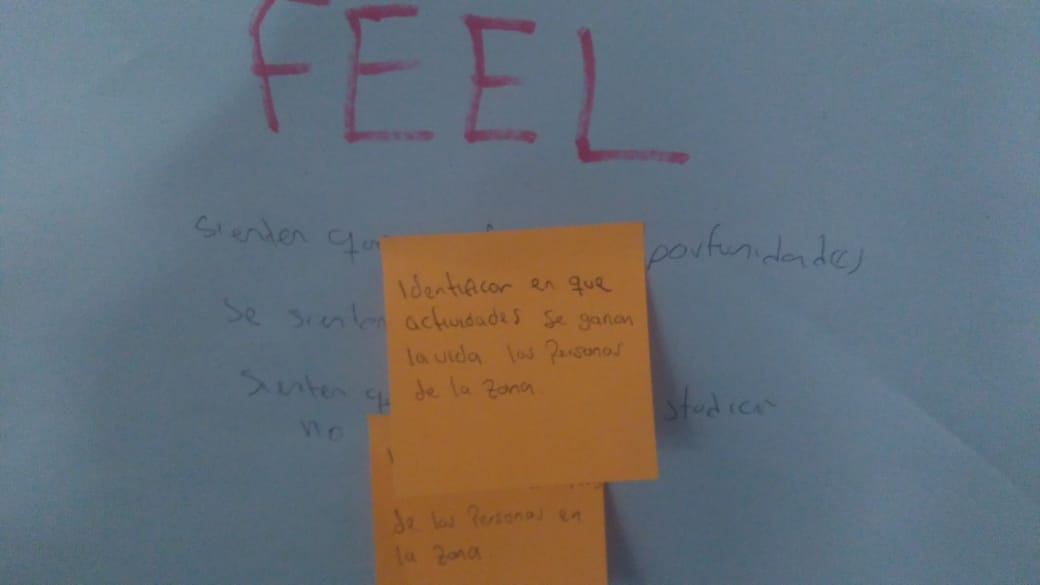 FEEL
Sienten que oportunidades
Se sienten
Sienten estudiar
no
Identificar en que
actividades se ganan
la vida las Personas
de la zona
de las Personas en
la zona